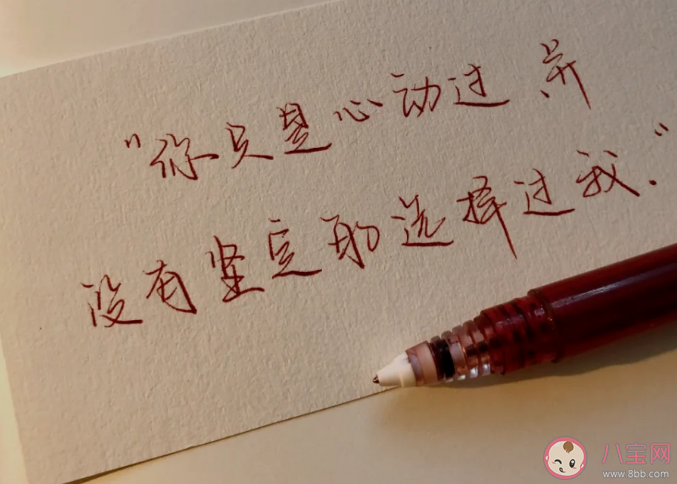 “你只是心动过 并
没有坚定的选择过我.”
八宝网
www.8bb.com